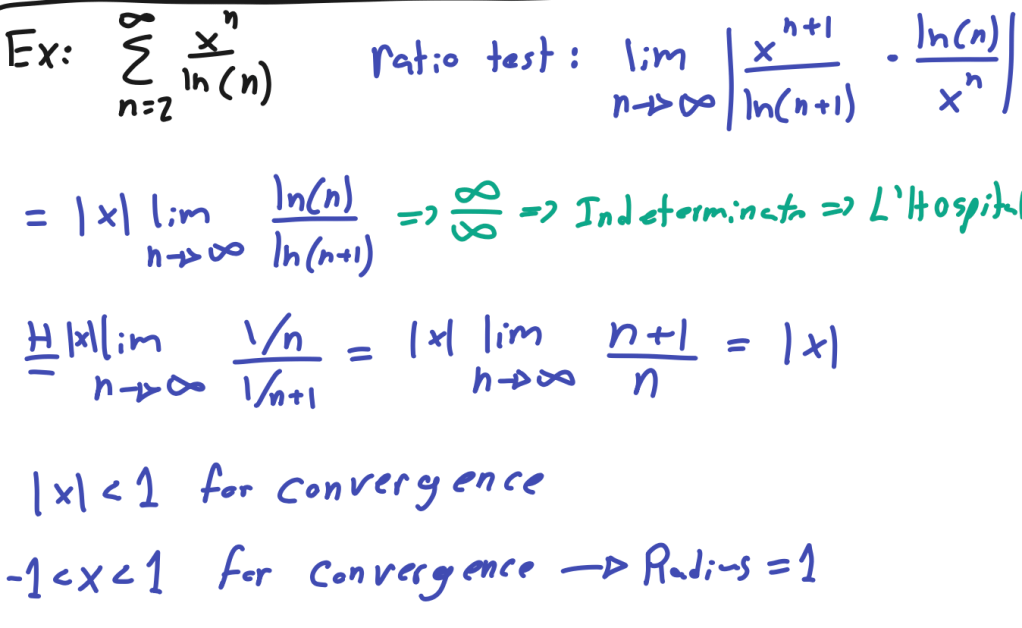 Ex: ∑_{n=2}^{∞} x^n / ln(n)   ratio test: lim_{n→∞} | x^{n+1} / ln(n+1) · ln(n) / x^n |
= |x| lim_{n→∞} ln(n) / ln(n+1) => ∞/∞ => Indeterminate => L'Hospital
=^H |x| lim_{n→∞} (1/n) / (1/n+1) = |x| lim_{n→∞} (n+1) / n = |x|
|x| < 1 for convergence
-1 < x < 1 for convergence → Radius = 1